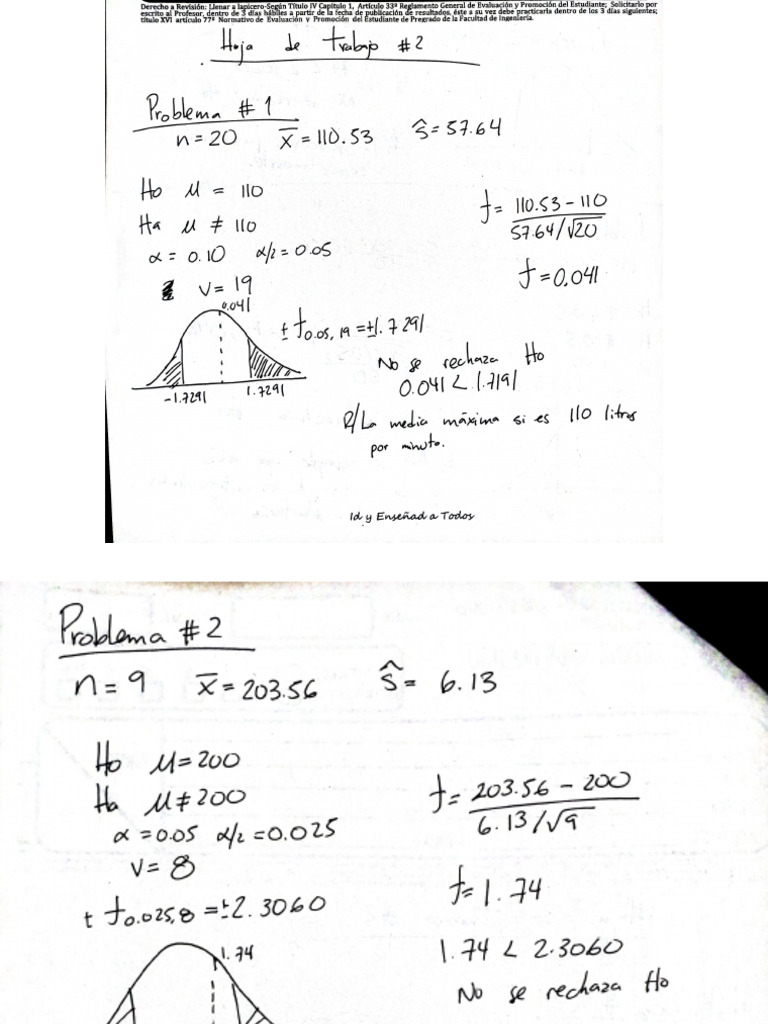 Derecho a Revisión: Llenar a lapicero-Según Título IV Capítulo 1, Artículo 33º Reglamento General de Evaluación y Promoción del Estudiante; Solicitarlo por
escrito al Profesor, dentro de 3 días hábiles a partir de la fecha de publicación de resultados, éste a su vez debe practicarla dentro de los 3 días siguientes;
título XVI artículo 77º Normativo de Evaluación y Promoción del Estudiante de Pregrado de la Facultad de Ingeniería.
Hoja de trabajo #2
Problema #1
n=20 x̄=110.53 ŝ=57.64
Ho μ = 110
Ha μ ≠ 110
α = 0.10 α/2 = 0.05
v = 19
t = 110.53 - 110
57.64/√20
t = 0.041
0.041
± t0.05, 19 = ±1.7291
-1.7291 1.7291
No se rechaza Ho
0.041 < 1.7191
R/La media máxima si es 110 litros
por minuto.
Id y Enseñad a Todos
Problema #2
n = 9 x̄ = 203.56 ŝ = 6.13
Ho μ=200
Ha μ≠200
α = 0.05 α/2 = 0.025
v = 8
± t0.025,8 = ±2.3060
1.74
t = 203.56 - 200
6.13/√9
t = 1.74
1.74 < 2.3060
No se rechaza Ho